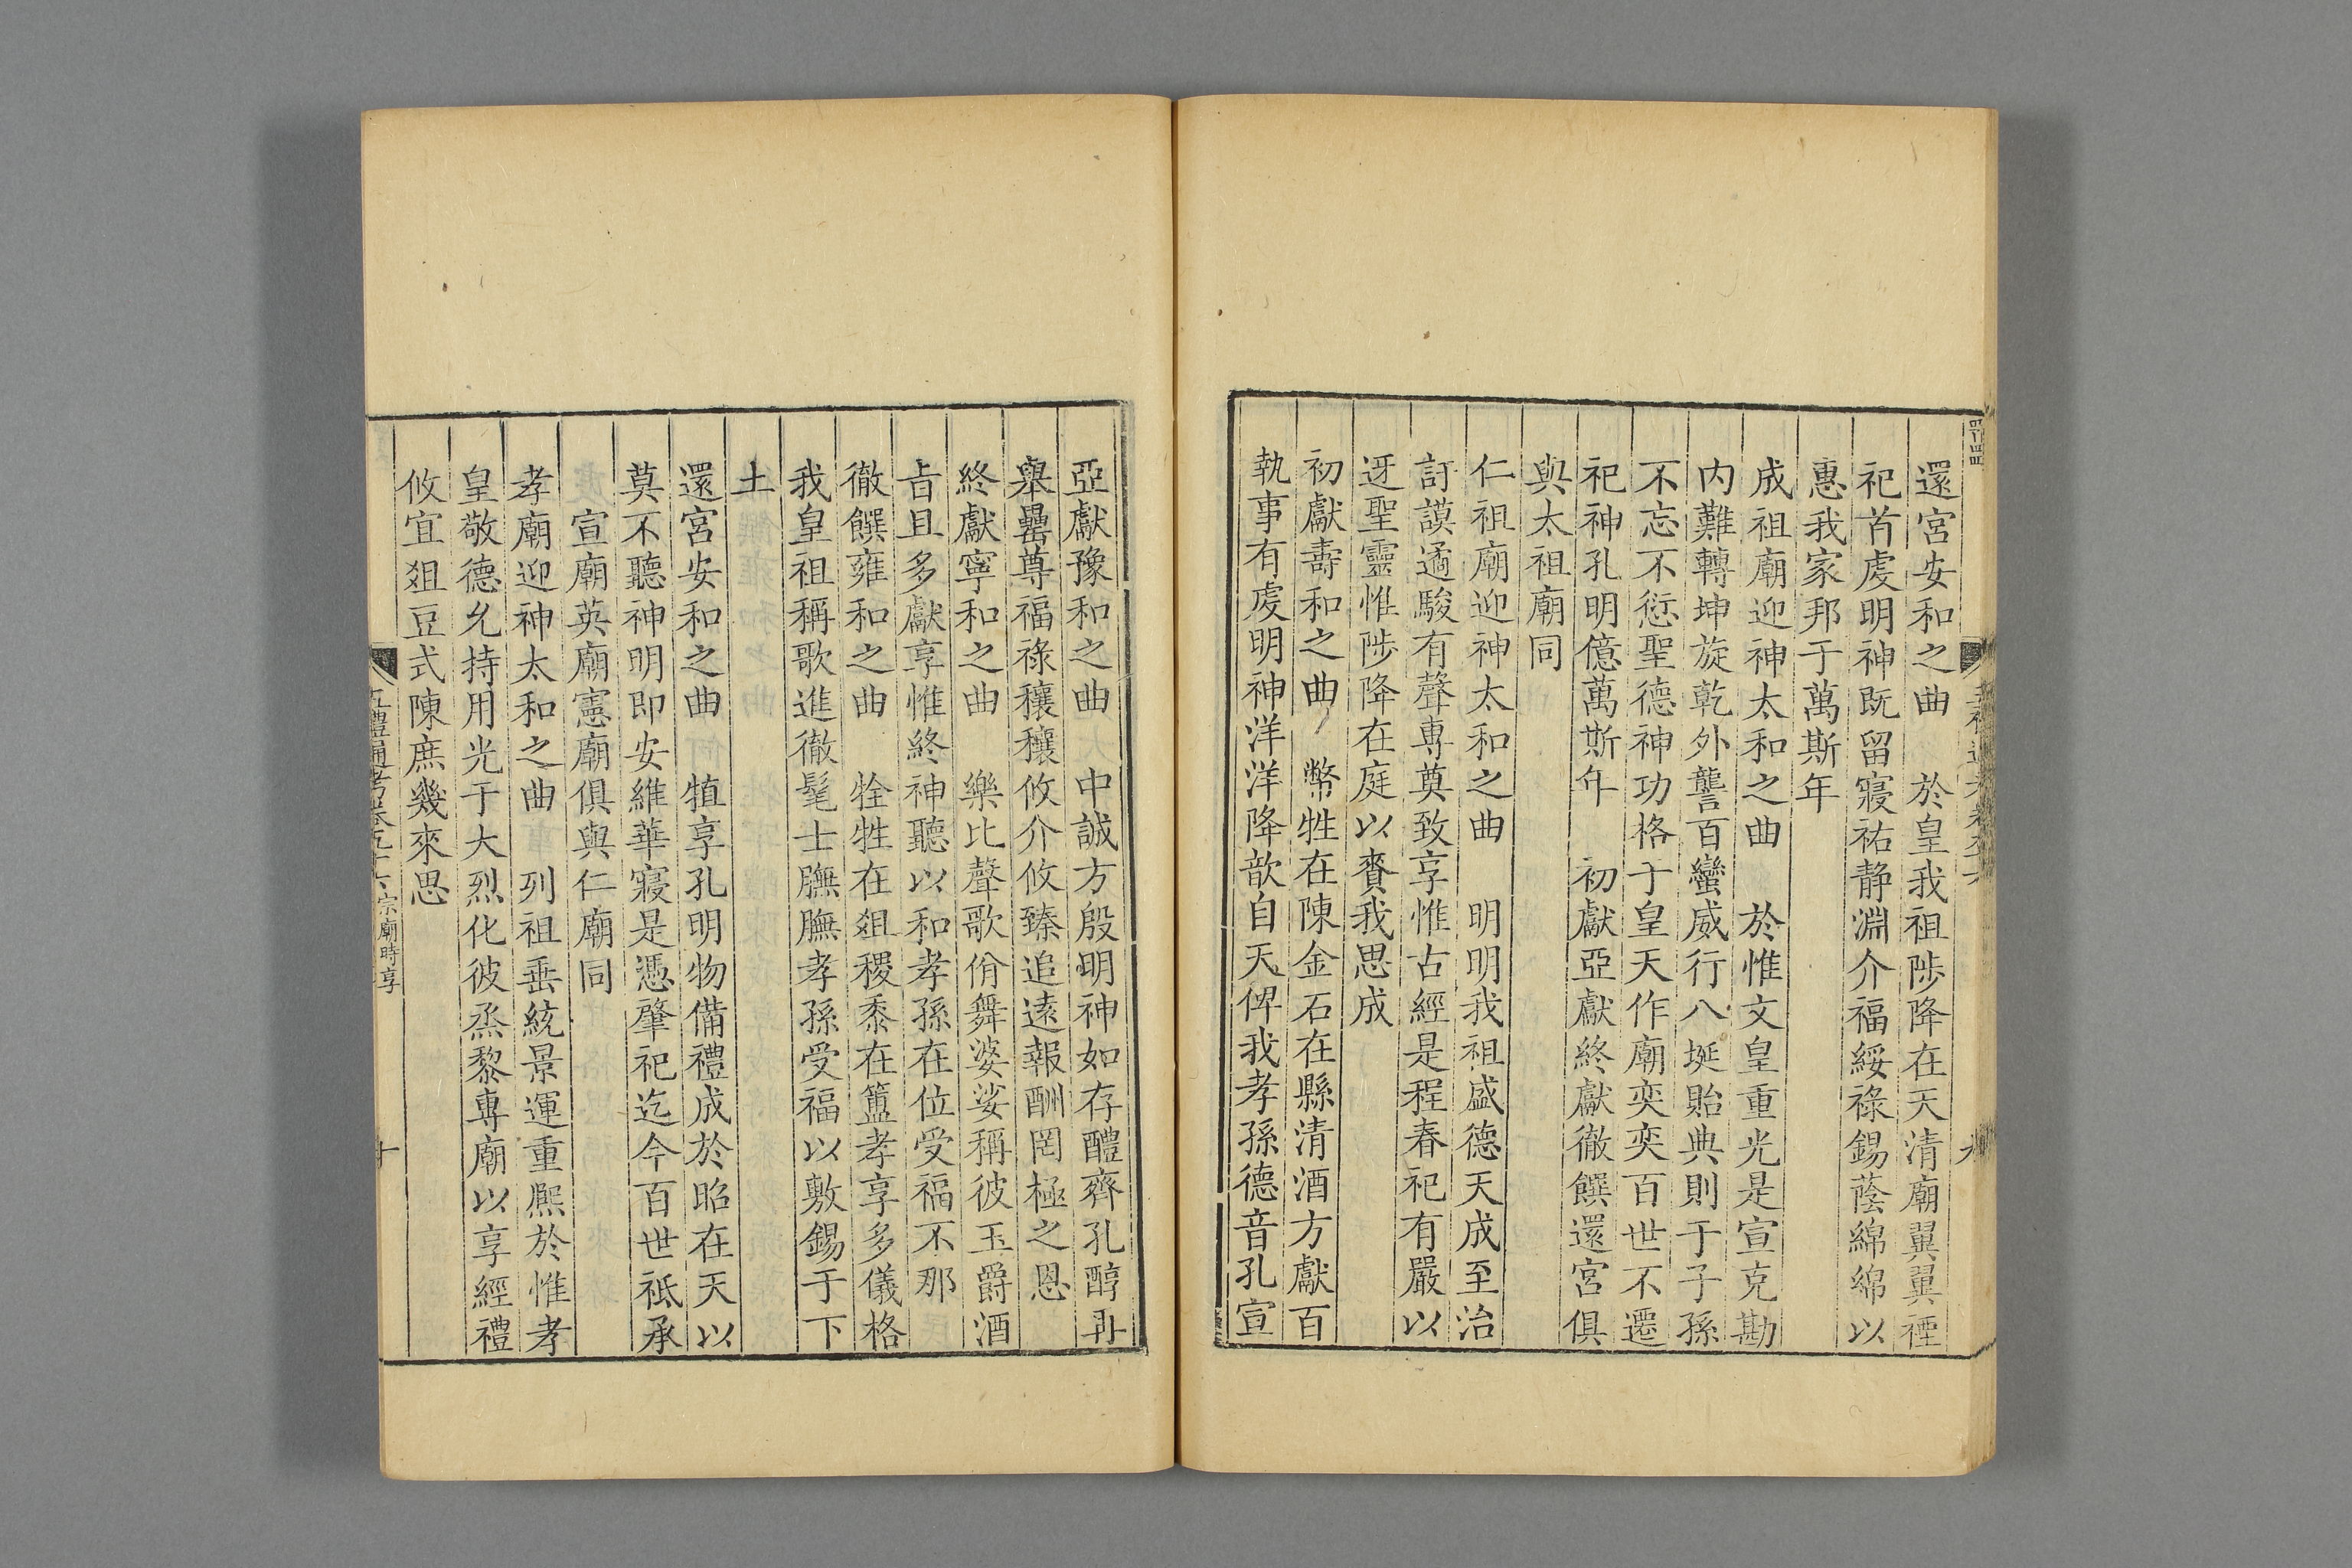 還宮安和之曲　於皇我祖陟降在天清廟翼翼禋
祀首䖍明神既留寢祐静淵介福綏祿錫蔭綿綿以
惠我家邦于萬斯年
成祖廟迎神太和之曲　於惟文皇重光是宣克勘
内難轉坤旋乾外讋百蠻威行八埏貽典則于子孫
不忘不愆聖德神功格于皇天作廟奕奕百世不遷
祀神孔明億萬斯年　初獻亞獻終獻徹饌還宮俱
與太祖廟同
仁祖廟迎神太和之曲　明明我祖盛德天成至治
訏謨遹駿有聲專奠致享惟古經是程春祀有嚴以
迓聖靈惟陟降在庭以賚我思成
初獻壽和之曲　幣牲在陳金石在縣清酒方獻百
執事有䖍明神洋洋降歆自天俾我孝孫德音孔宣
亞獻豫和之曲　中誠方殷明神如存醴齊孔醇再
舉罍尊福祿穰穰攸介攸臻追遠報酬罔極之恩
終獻寧和之曲　樂比聲歌佾舞婆娑稱彼玉爵酒
旨且多獻享惟終神聽以和孝孫在位受福不那
徹饌雍和之曲　牷牲在爼稷黍在簠孝享多儀格
我皇祖稱歌進徹髦士膴膴孝孫受福以敷錫于下
土
還宮安和之曲　犆享孔明物備禮成於昭在天以
莫不聽神明即安維華寢是憑肇祀迄今百世祗承
宣廟英廟憲廟俱與仁廟同
孝廟迎神太和之曲　列祖垂統景運重熈於惟孝
皇敬德允持用光于大烈化彼烝黎專廟以享經禮
攸宜爼豆式陳庶幾來思
五禮通考卷五十　宗廟時享
十